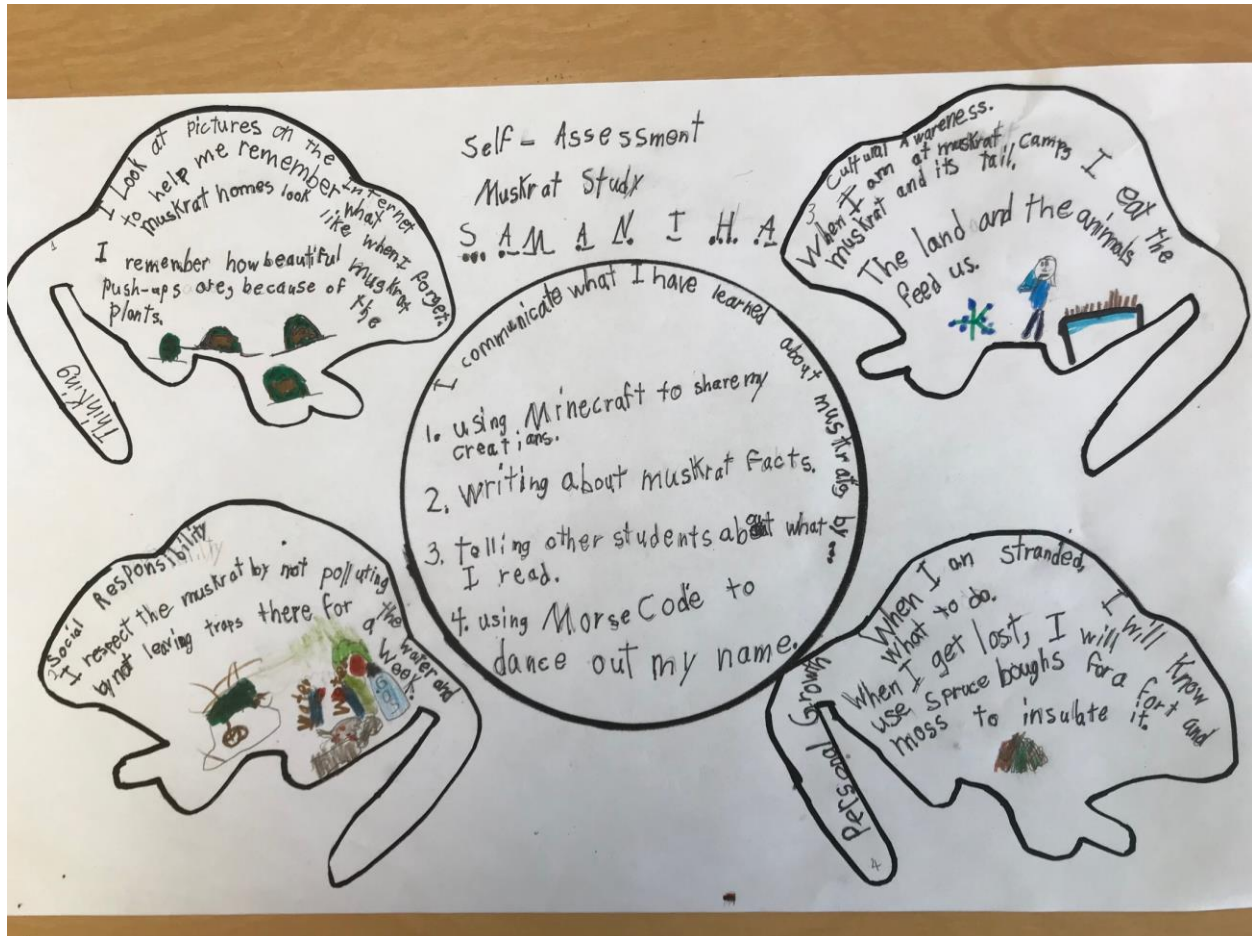 Self-Assessment
Muskrat Study
S A M A N T H A
1
Thinking
I Look at pictures on the Internet
to help me remember what
muskrat homes look like when I forget.
I remember how beautiful muskrat
push-ups are, because of the
plants.
3 Cultural Awareness.
When I am at muskrat camps I eat the
muskrat and its tail.
The land and the animals
feed us.
K
I communicate what I have learned about muskrats by...
1. using Minecraft to share my
creations.
2. Writing about muskrat facts.
3. telling other students about what
I read.
4. using Morse Code to
dance out my name.
2 Social Responsibility
I respect the muskrat by not polluting the water and
by not leaving traps there for a week.
4
Personal Growth
When I an stranded, I will know
what to do.
When I get lost, I will
use spruce boughs for a fort and
moss to insulate it.